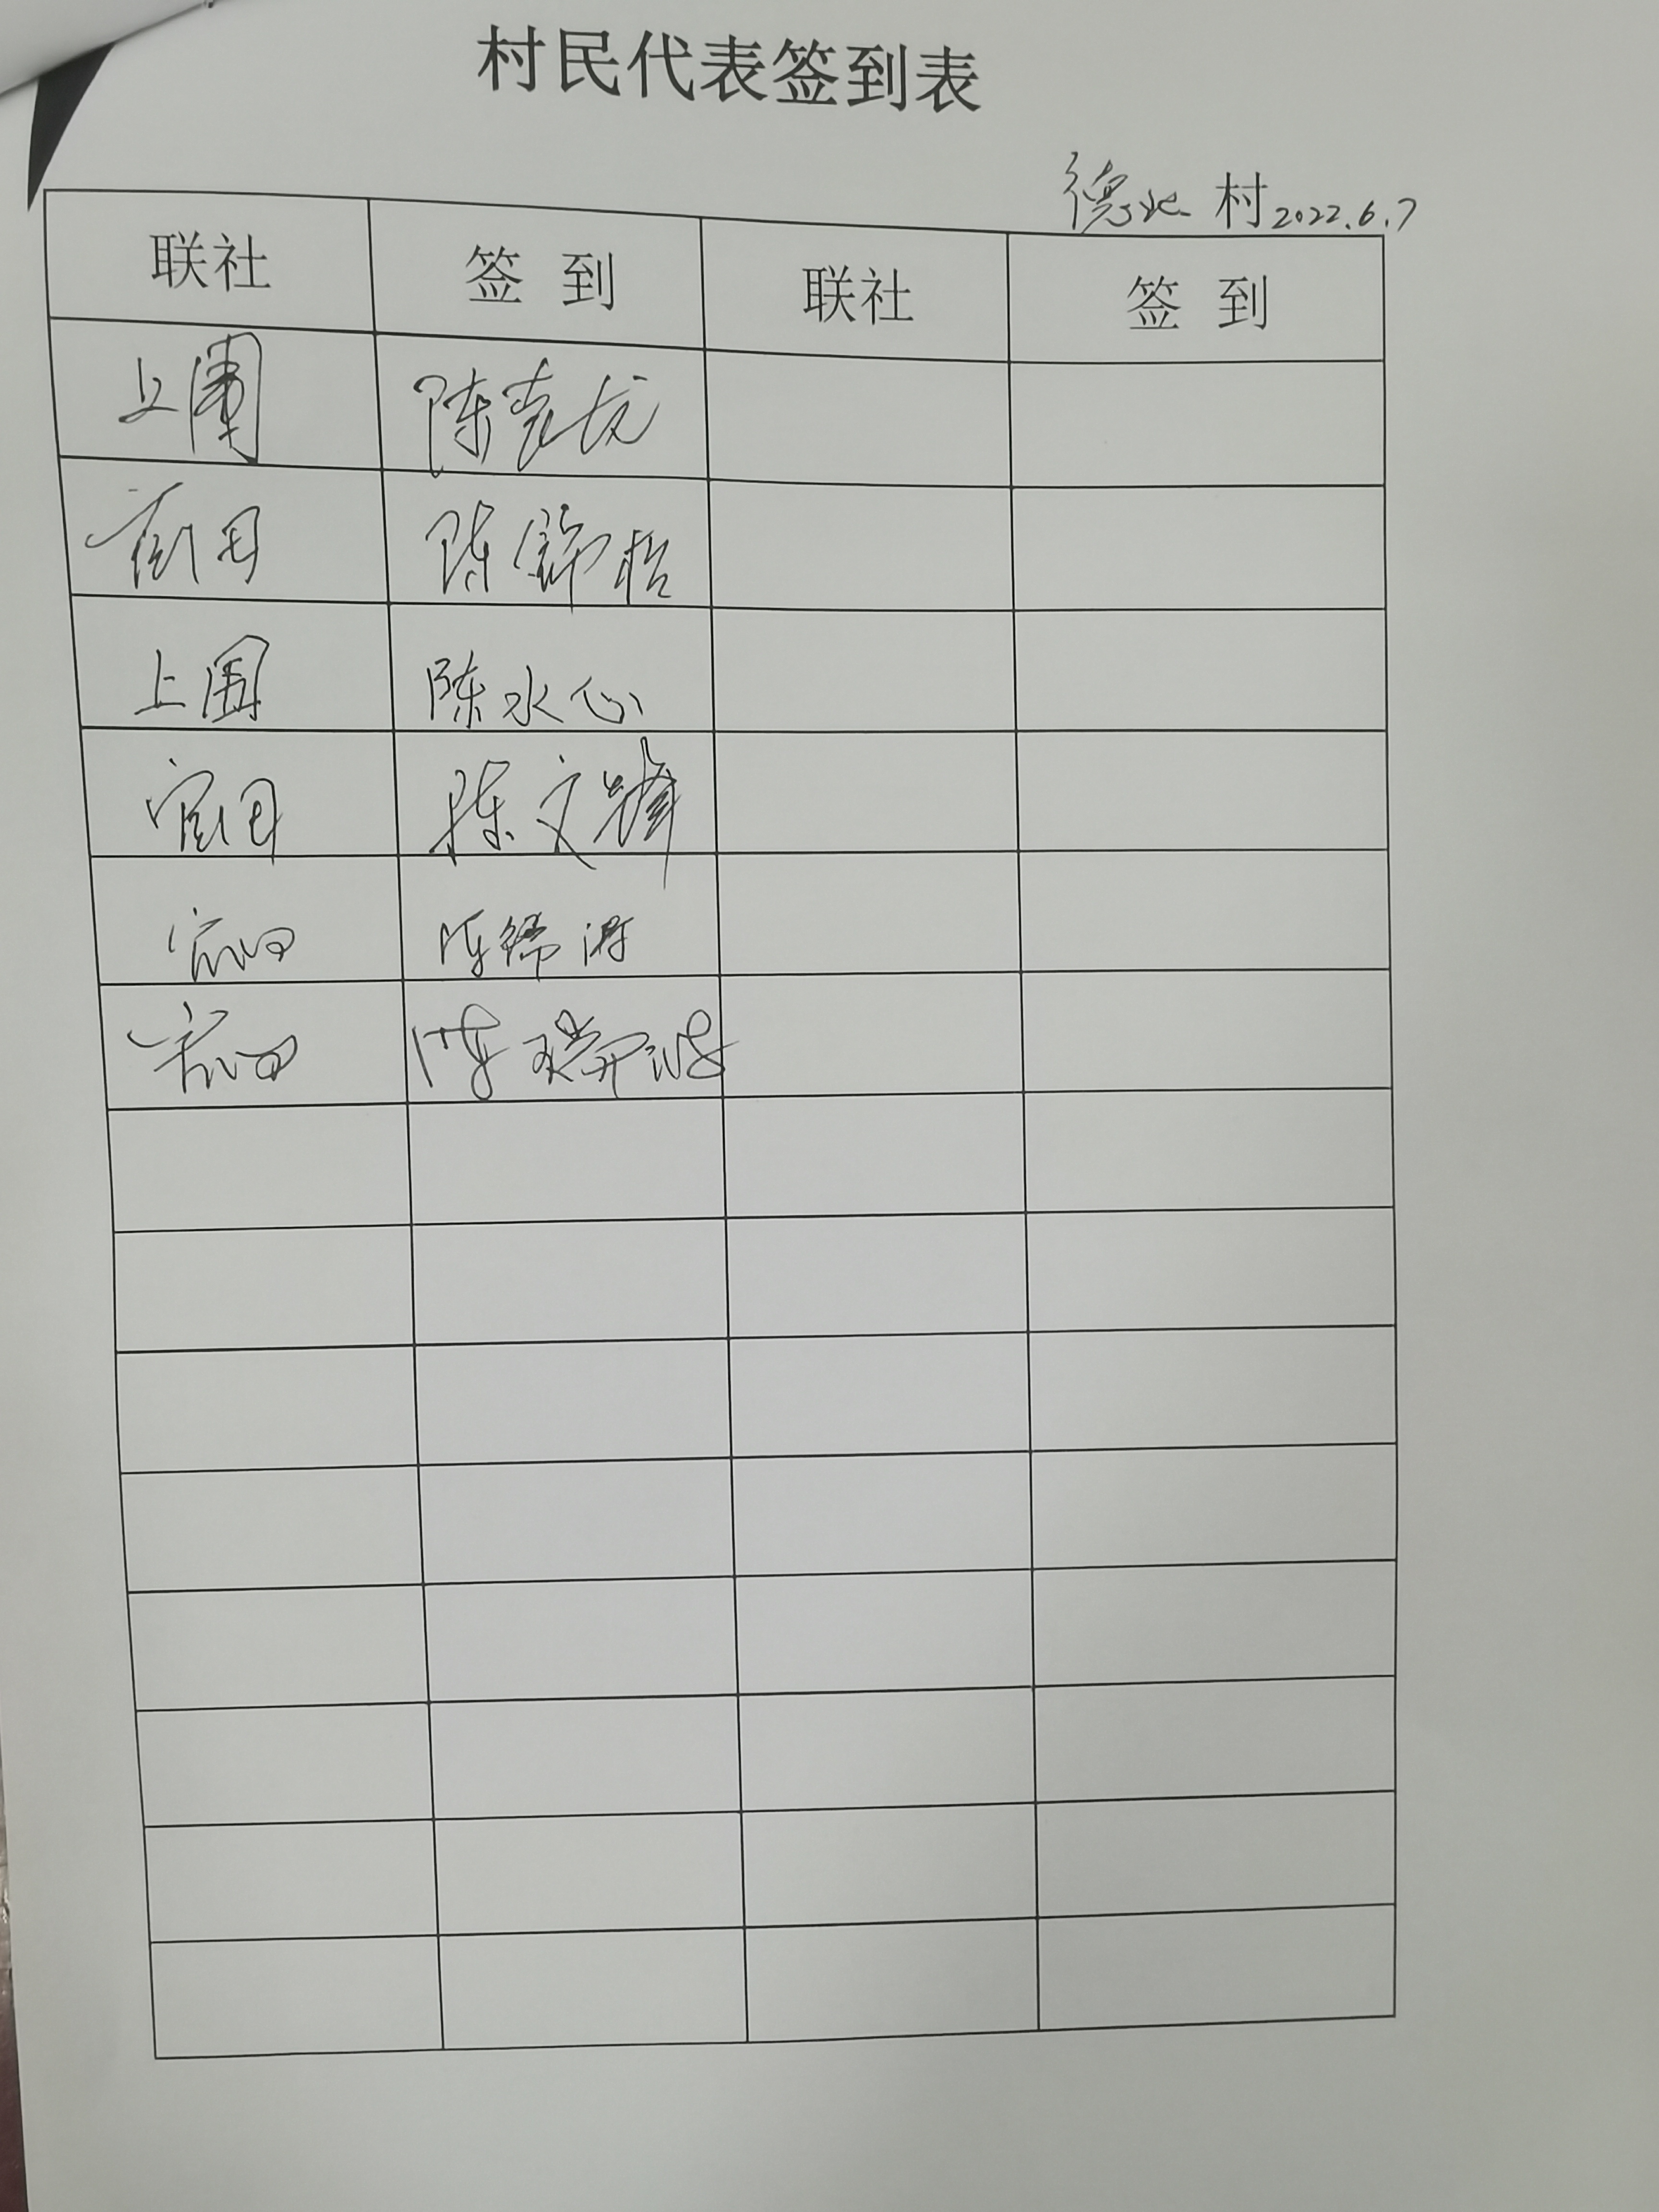 村民代表签到表
德北 村 2022.6.7
联社 签到 联社 签到
上围 陈
陈锦
上围 陈水心
官田 陈文锋
官田 陈锦
官田 陈瑞